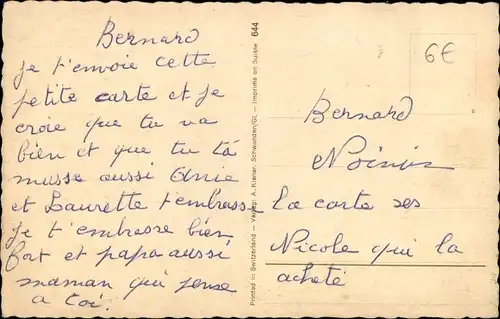 Bernard
Je t'envoie cette
petite carte et je
croie que tu va
bien et que tu tá
musse aussi Anie
et Laurette t'embrass
Je t'embrasse bien
fort et papa aussi
maman qui pense
a toi.
Printed in Switzerland — Verlag: A. Kiener, Schwanden/GL — Imprimé en Suisse 644
6€
Bernard
la carte ses
Nicole qui la
acheté